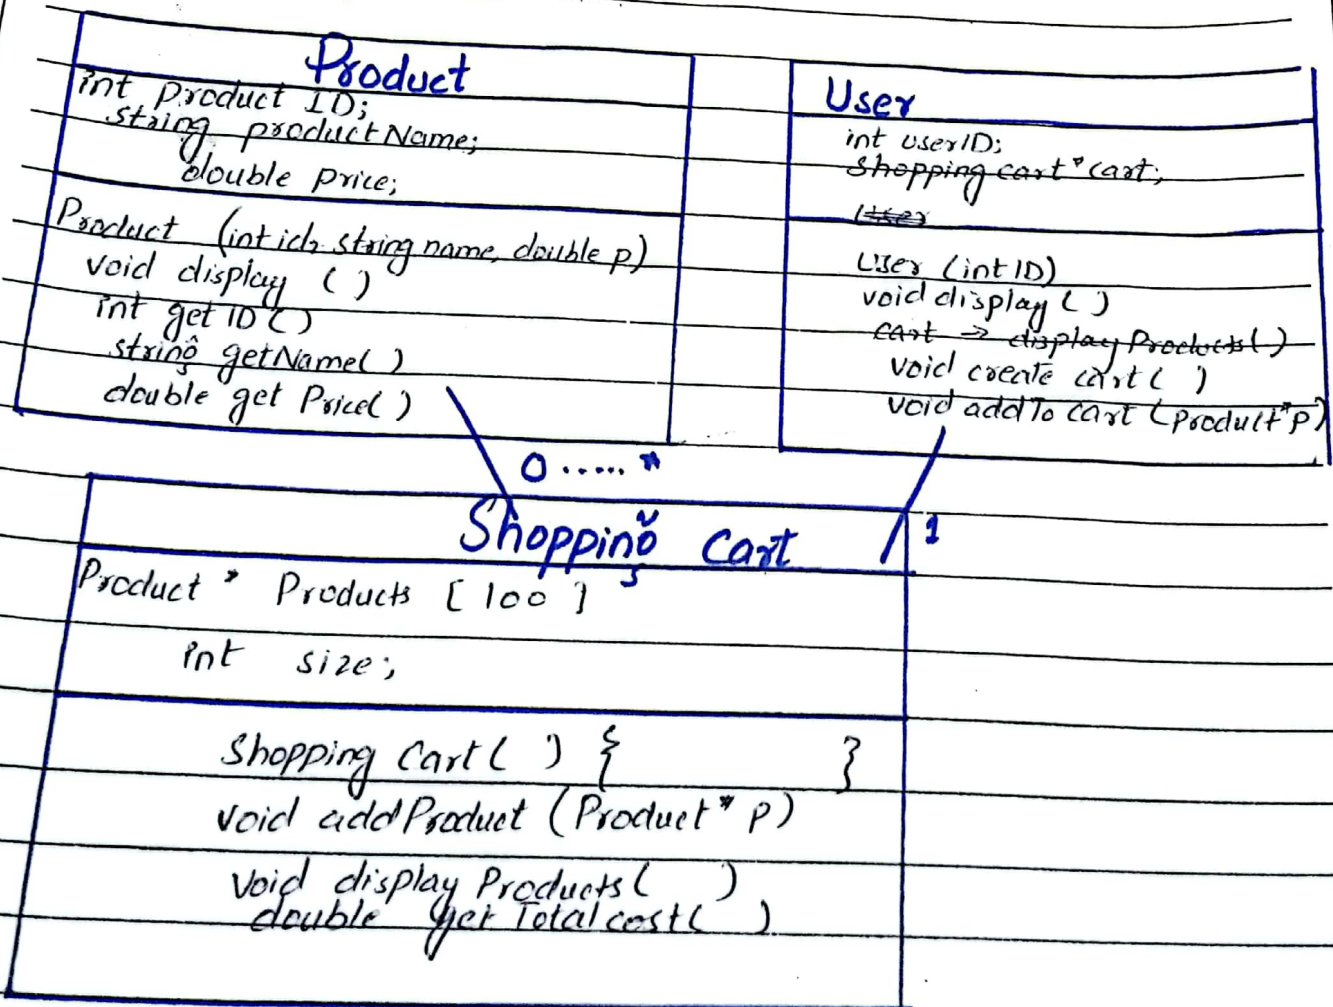 Product
int Product ID;
string productName;
double Price;
Product (int id, string name, double p)
void display ( )
int get ID ( )
string getName( )
double get Price( )
User
int userID;
Shopping cart * cart;
User
User (int ID)
void display ( )
cart → display Products( )
void create cart ( )
void addTo cart (Product *P)
0 ..... *
1
Shopping Cart
Product * Products [ 100 ]
int size;
Shopping Cart ( ) { }
void addProduct (Product * P)
void display Products ( )
double get Total cost ( )